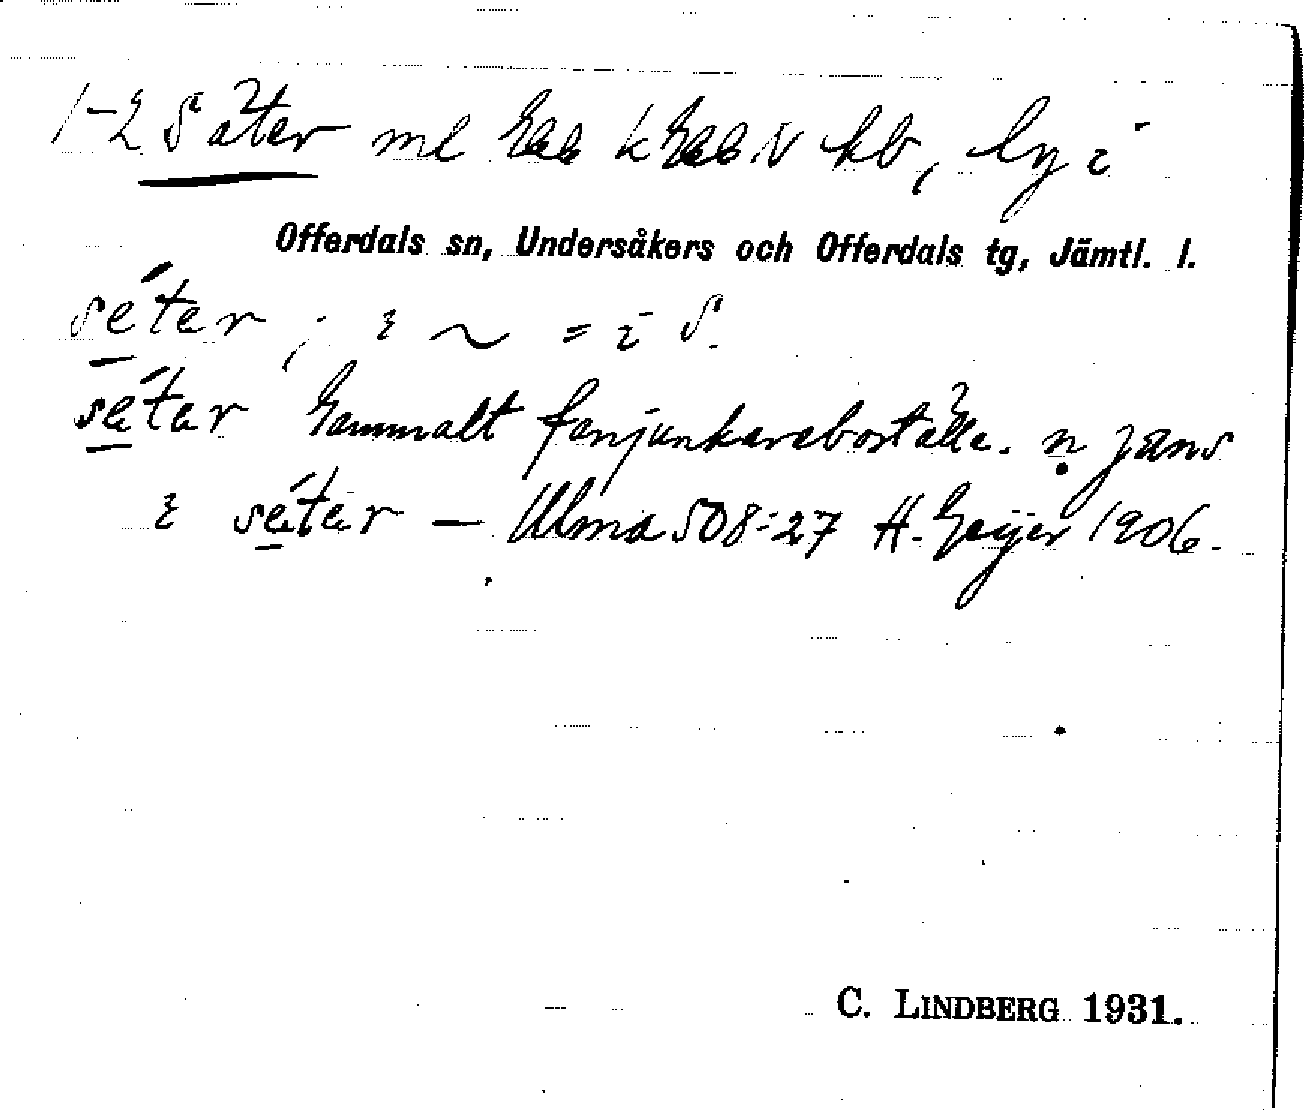 1-2 Säter ml Geb k Geb N kb, by i
Offerdals sn, Undersåkers och Offerdals tg, Jämtl. l.
séter, ; i ~ = i S.
sétar Gammalt fanjunkareboställe. n jans
i sétar — Ulma 508:27 H. Geijer 1906.
C. LINDBERG 1931.